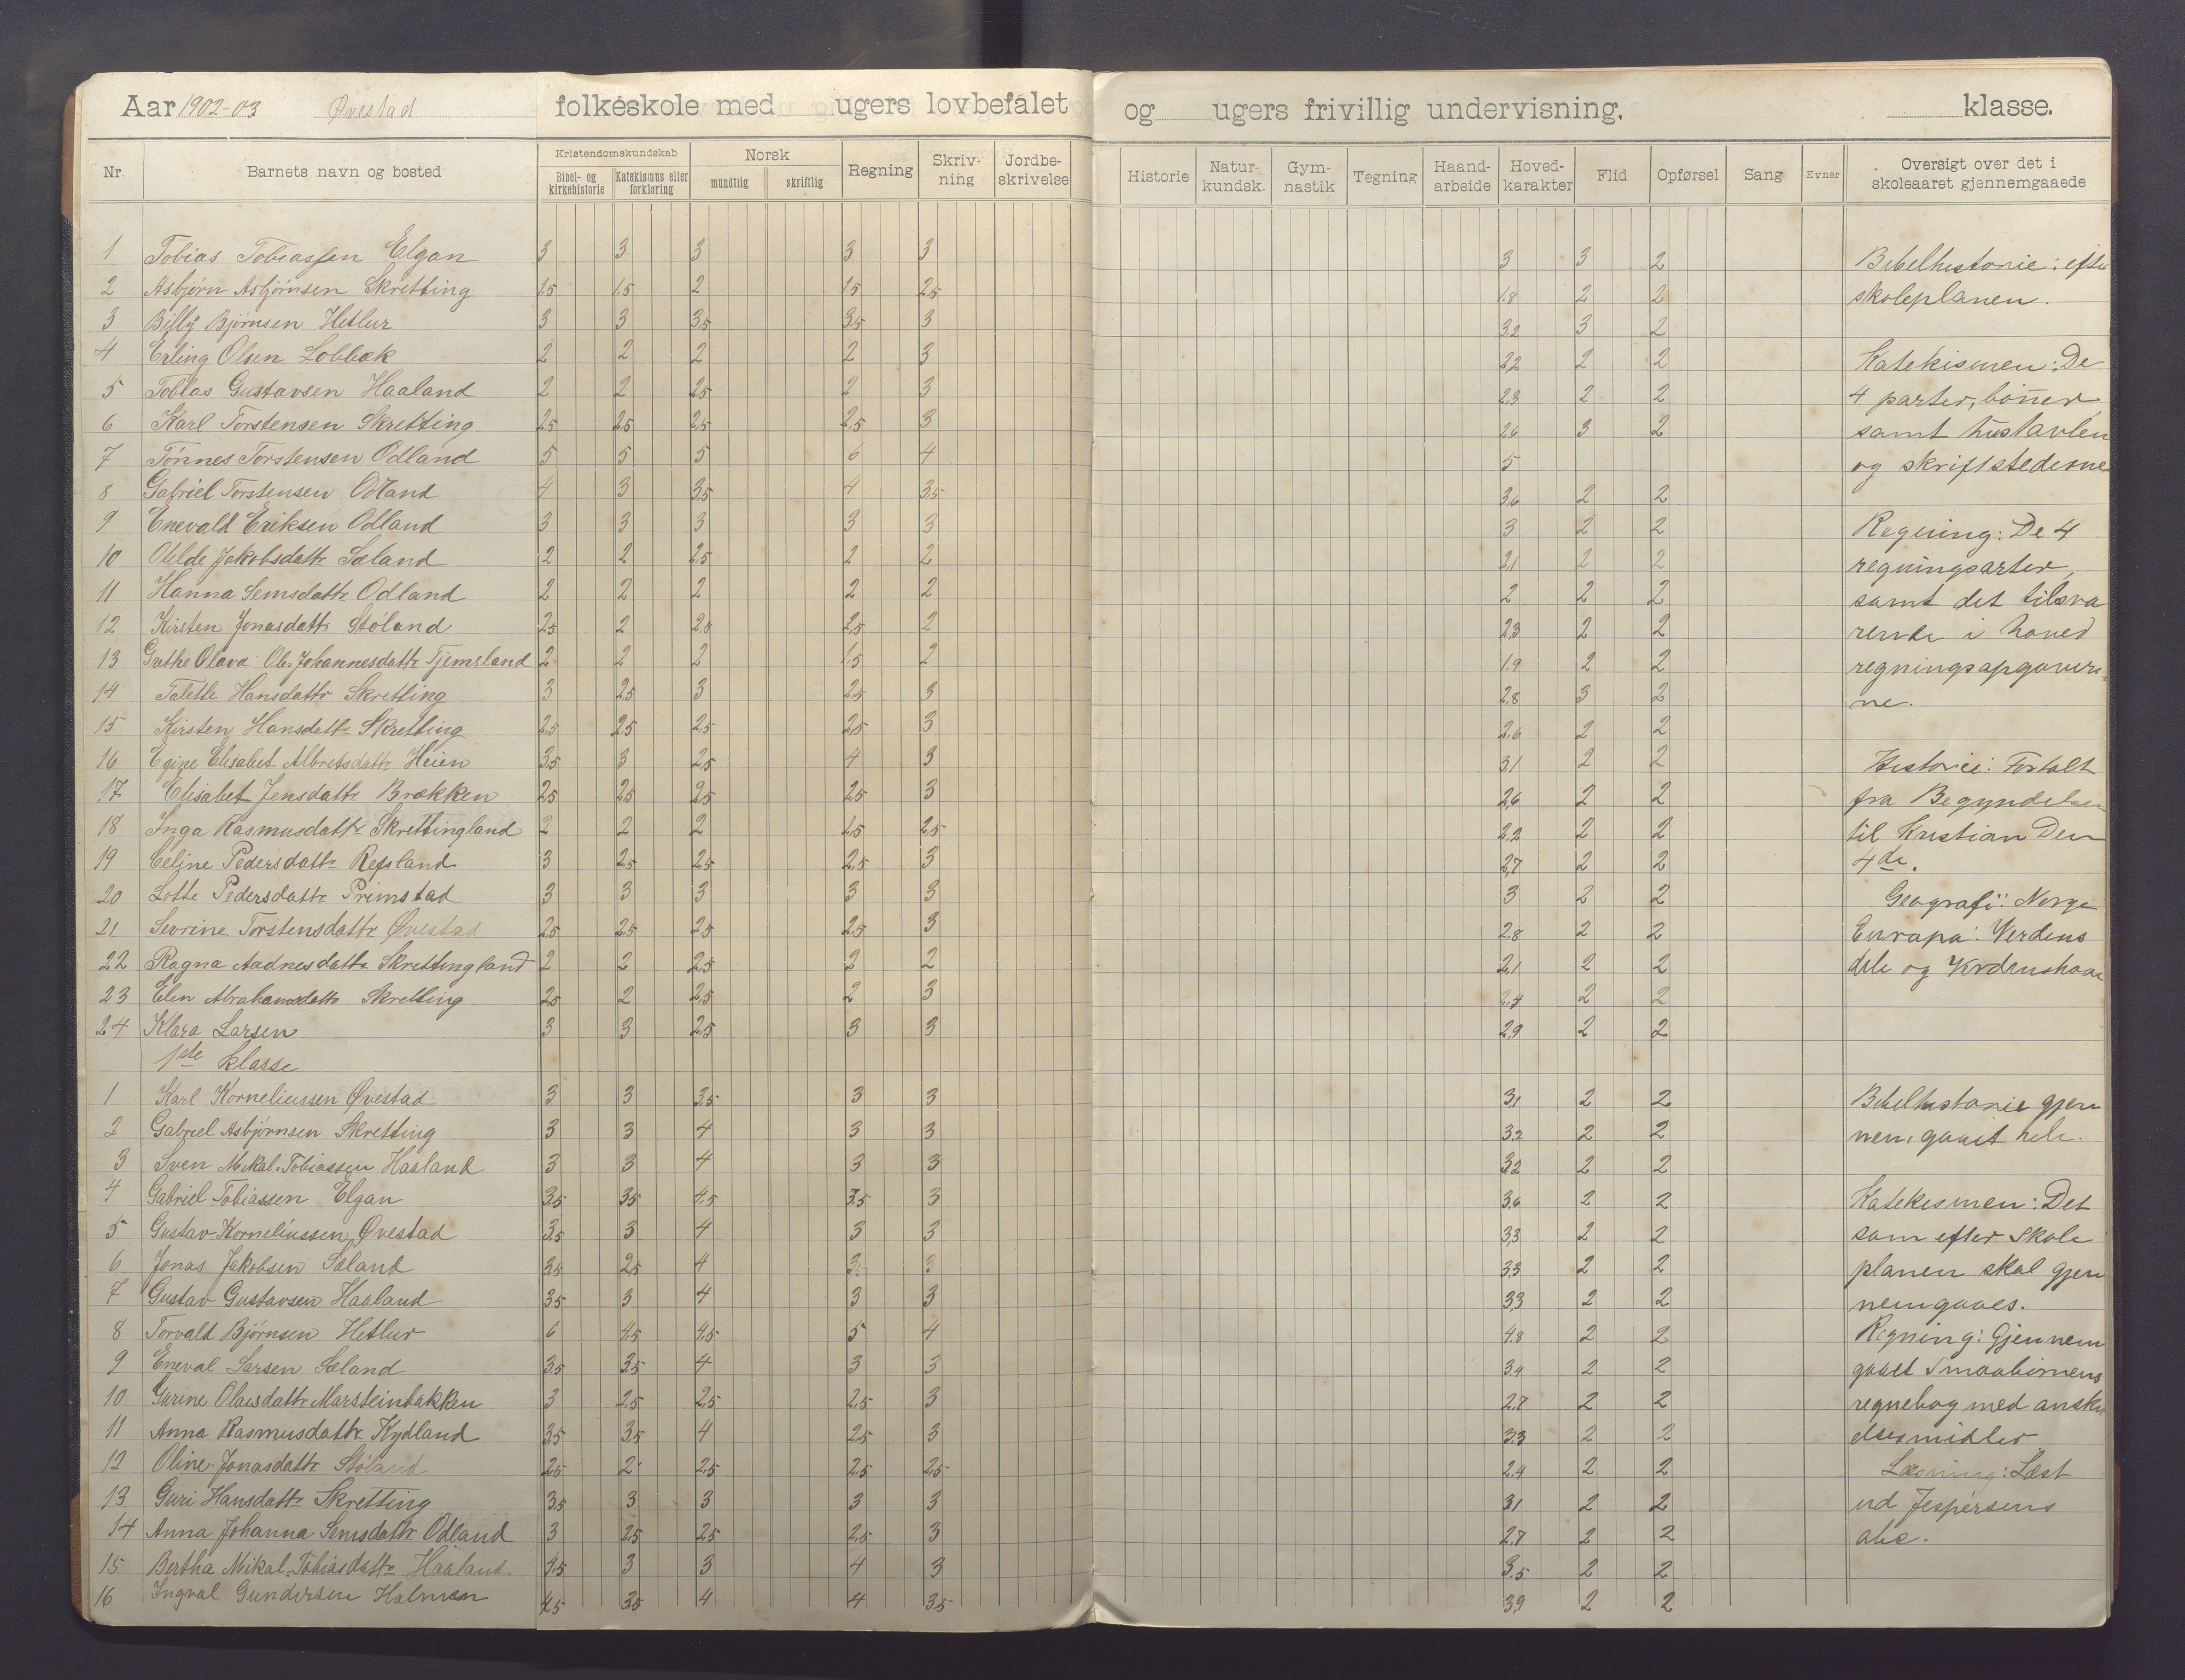 Aar 1902-03 Øvestad folkeskole med ugers lovbefalet og ugers frivillig undervisning. klasse.
Nr. Barnets navn og bosted Kristendomskundskab Bibel- og kirkehistorie Katekismus eller forklaring Norsk mundtlig skriftlig Regning Skrivning Jordbeskrivelse Historie Naturkundsk. Gymnastik Tegning Haandarbeide Hovedkarakter Flid Opførsel Sang Evner Oversigt over det i skoleaaret gjennemgaaede
1 Tobias Tobiassen Elgan 3 3 3 3 3 3 3 2 Bibelhistorie: efter
2 Asbjørn Asbjørnsen Skretting 1.5 1.5 2 1.5 2.5 1.8 2 2 skoleplanen.
3 Billy Bjørnsen Hetlur 3 3 3.5 3.5 3 3.2 3 2
4 Erling Olsen Lobbak 2 2 2 2 3 2.2 2 2 Katekismen: De
5 Tobias Gustavsen Haaland 2 2 2.5 2 3 2.3 2 2 4 parter, bønner
6 Karl Torstensen Skretting 2.5 2.5 2.5 2.5 3 2.6 3 2 samt hustavlen
7 Tønnes Torstensen Odland 5 5 5 6 4 5 og skriftstederne
8 Gabriel Torstensen Odland 4 3 3.5 4 3.5 3.6 2 2
9 Enevald Eriksen Odland 3 3 3 3 3 3 2 2 Regning: De 4
10 Olelde Jakobsdattr Sæland 2 2 2.5 2 2 2.1 2 2 regningsarter,
11 Hanna Semsdattr Odland 2 2 2 2 2 2 2 2 samt det tilsva
12 Kirsten Jonasdattr Støland 2.5 2 2.5 2.5 2 2.3 2 2 rende i hoved
13 Grethe Olava Ol. Johannesdattr Tjemsland 2 2 2 1.5 2 1.9 2 2 regningsopgaver-
14 Talette Hansdattr Skretting 3 2.5 3 2.5 3 2.8 3 2 ne.
15 Kirsten Hansdattr Skretting 2.5 2.5 2.5 2.5 3 2.6 2 2
16 Egine Elisabet Albretsdattr Heien 3.5 3 2.5 4 3 3.1 2 2 Historie: Fortalt
17 Elisabet Jensdattr Brækken 2.5 2.5 2.5 2.5 3 2.6 2 2 fra Begyndelsen
18 Inga Rasmusdattr Skrettingland 2 2 2 2.5 2.5 2.2 2 2 til Kristian Den
19 Celine Pedersdattr Refsland 3 2.5 2.5 2.5 3 2.7 2 2 4de.
20 Lotte Pedersdattr Primstad 3 3 3 3 3 3 2 2 Geografi: Norge
21 Sevrine Torstensdattr Øvestad 2.5 2.5 2.5 2.5 3 2.8 2 2 Europa: Verdens
22 Ragna Aadnesdattr Skrettingland 2 2 2.5 2 2 2.1 2 2 dele og Verdenshave
23 Elen Abrahamsdattr Skretting 2.5 2 2.5 2 3 2.4 2 2
24 Klara Larsen 3 3 2.5 3 3 2.9 2 2
1ste klasse
1 Karl Korneliussen Øvestad 3 3 3.5 3 3 3.1 2 2 Bibelhistorie gjen
2 Gabriel Asbjørnsen Skretting 3 3 4 3 3 3.2 2 2 nemgaaet hele.
3 Sven Mikal Tobiassen Haaland 3 3 4 3 3 3.2 2 2
4 Gabriel Tobiassen Elgan 3.5 3.5 4.5 3.5 3 3.6 2 2 Katekismen: Det
5 Gustav Korneliussen Øvestad 3.5 3 4 3 3 3.3 2 2 som efter Skole
6 Jonas Jakobsen Sæland 3.5 2.5 4 3 3 3.3 2 2 planen skal gjen
7 Gustav Gustavsen Haaland 3.5 3 4 3 3 3.3 2 2 nemgaaes.
8 Torvald Bjørnsen Hetlur 6 4.5 4.5 5 4 4.8 2 2 Regning: Gjennem
9 Eneval Larsen Sæland 3.5 3.5 4 3 3 3.4 2 2 gaaet Smaabørnens
10 Gurine Olausdattr Marsteinbakken 3 2.5 2.5 2.5 3 2.7 2 2 regnebog med ansku
11 Anna Rasmusdattr Kydland 3.5 3.5 4 2.5 3 3.3 2 2 elsesmidler
12 Oline Jonasdattr Støland 2.5 2 2.5 2.5 2.5 2.4 2 2 Læsning: Læst
13 Guri Hansdattr Skretting 3.5 3 3 3 3 3.1 2 2 ud Jespersens
14 Anna Johanna Semsdattr Odland 3 2.5 2.5 2.5 3 2.7 2 2 abc.
15 Bertha Mikal. Tobiasdattr Haaland 4.5 3 3 4 3 3.5 2 2
16 Ingval Gundersen Holmen 4.5 3.5 4 4 3.5 3.9 2 2